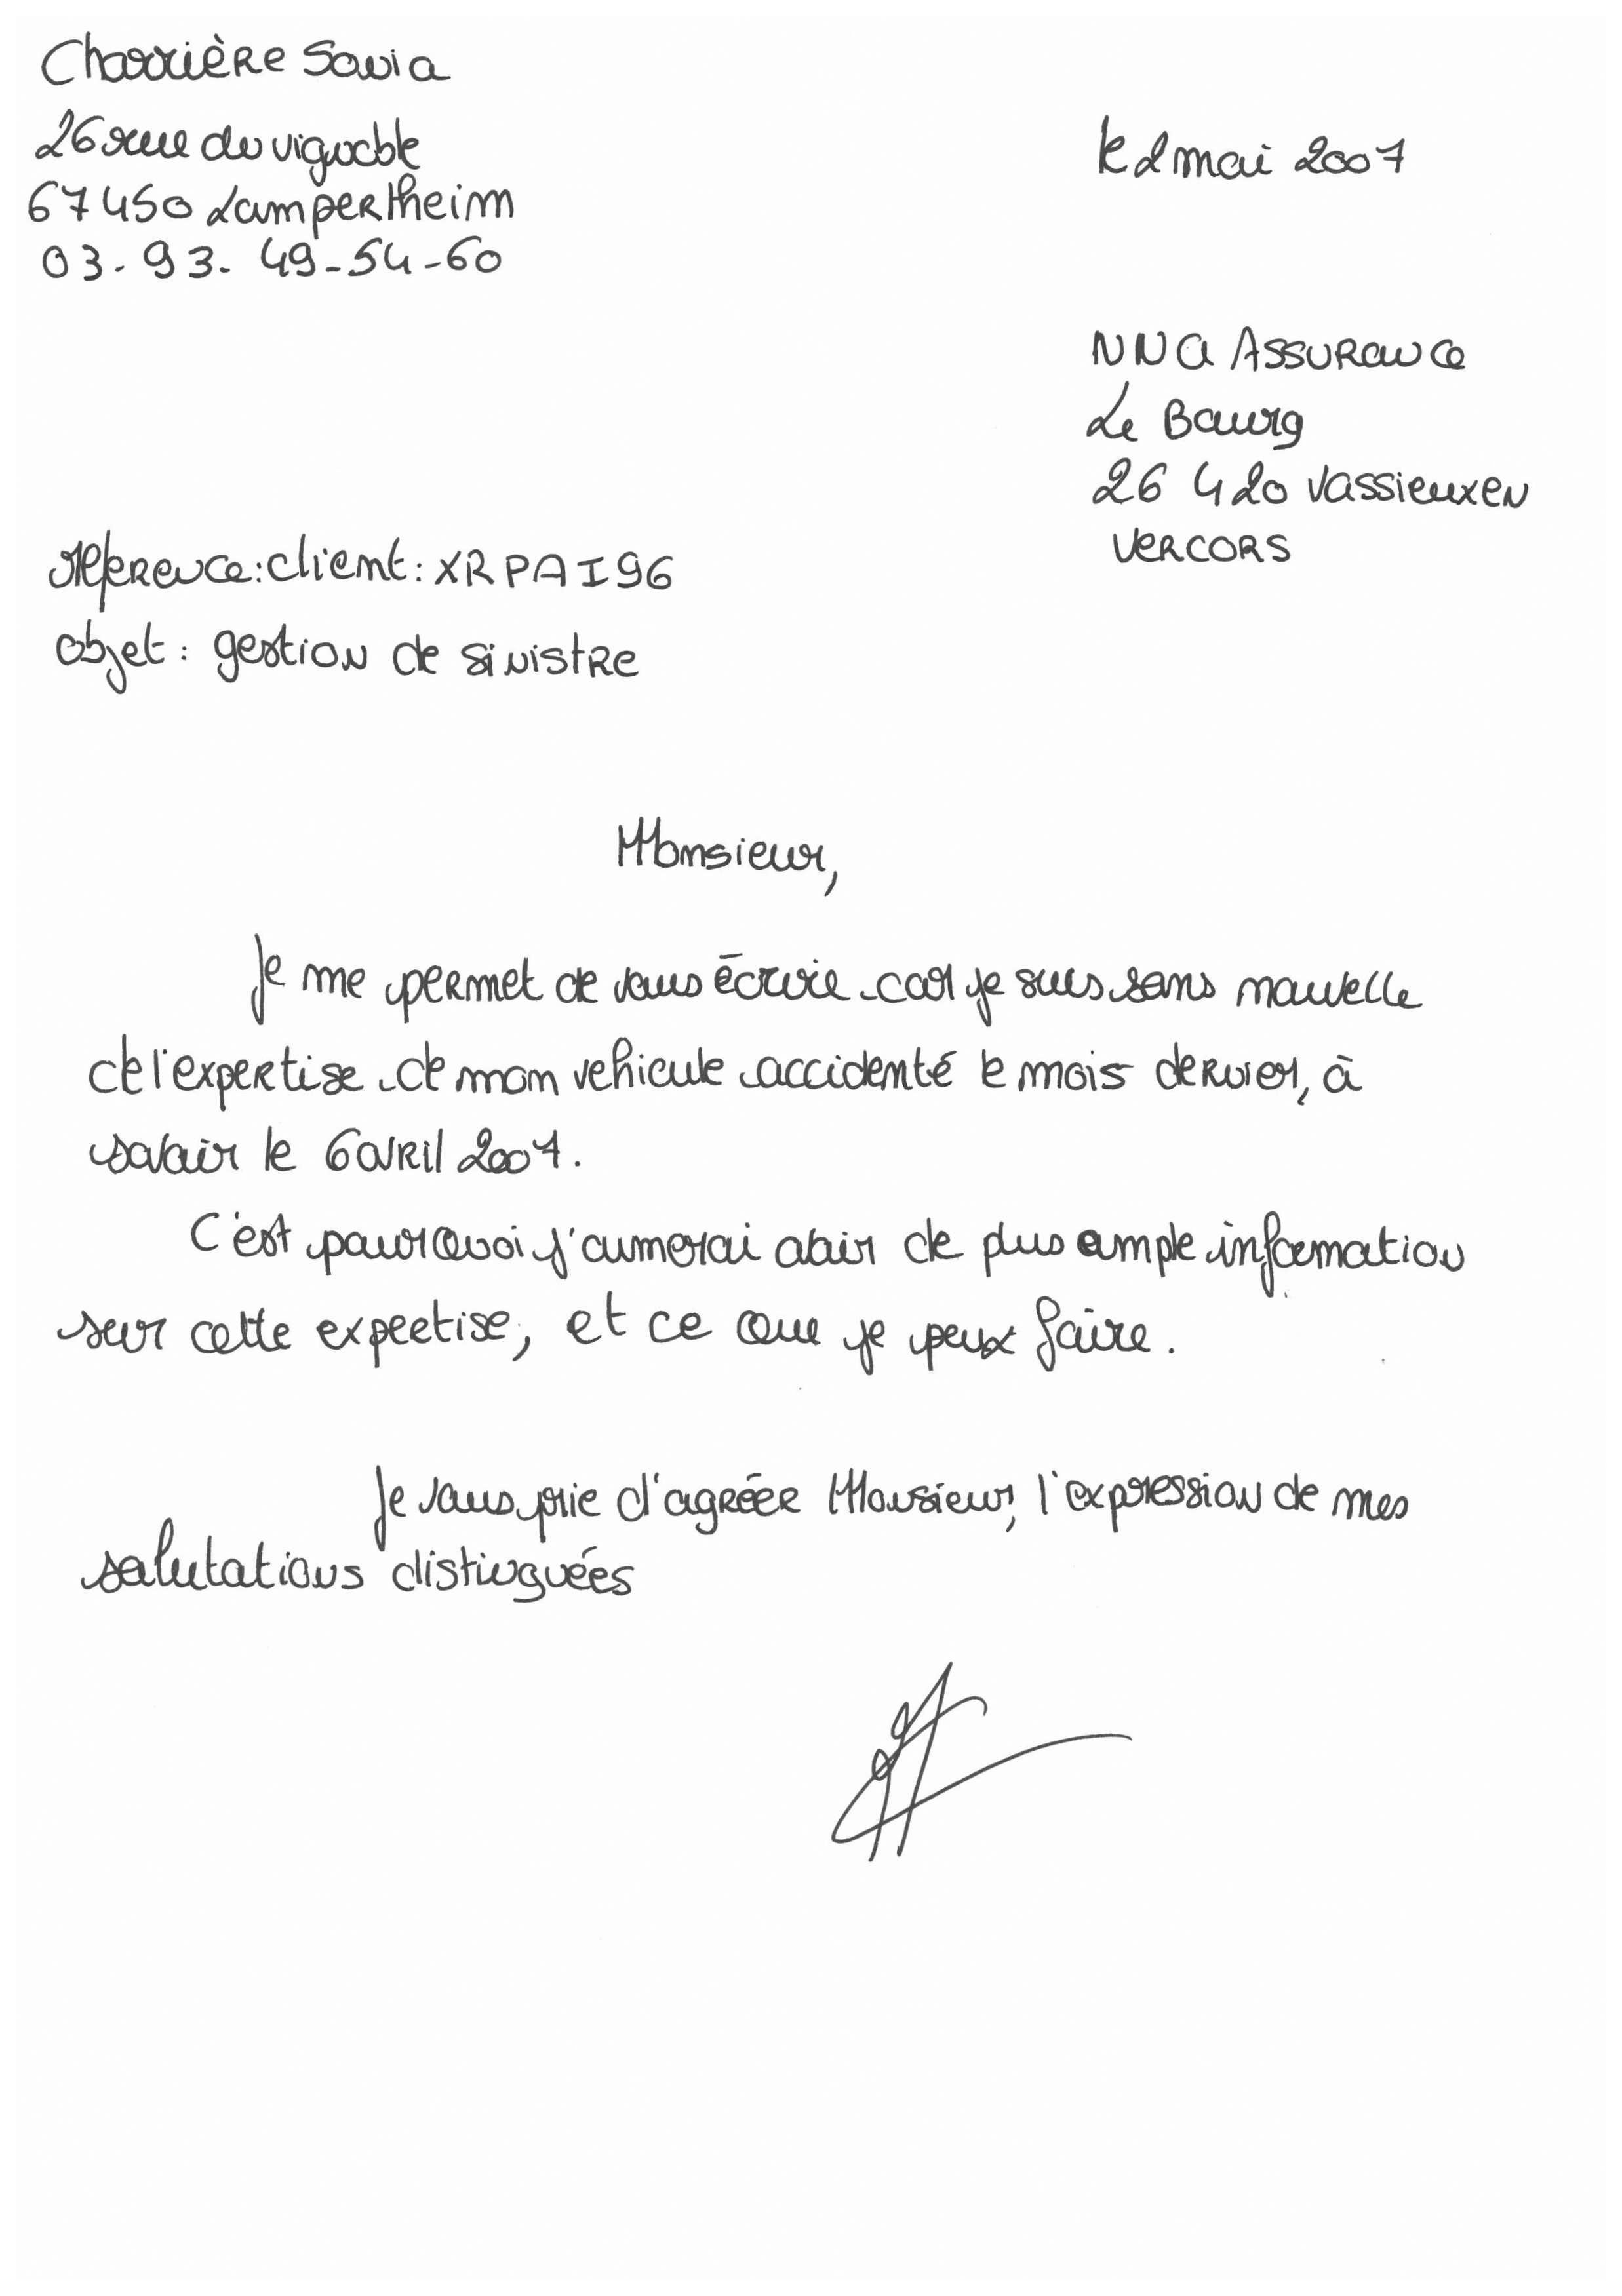 Charrière Sonia
26 rue du vignoble
67450 Lampertheim
03-93-49-54-60
le 2 mai 2007
NNA Assurance
Le Bourg
26 420 Vassieux en
Vercors
référence:client: XRPAI96
objet: gestion de sinistre
Monsieur,
Je me permet de vous écrire car je suis sans nouvelle
de l'expertise de mon vehicule accidenté le mois dernier, à
savoir le 6 avril 2007.
C'est pourquoi j'aimerai avoir de plus ample information
sur cette expertise, et ce que je peux faire.
Je vous prie d'agréer Monsieur, l'expression de mes
salutations distinguées